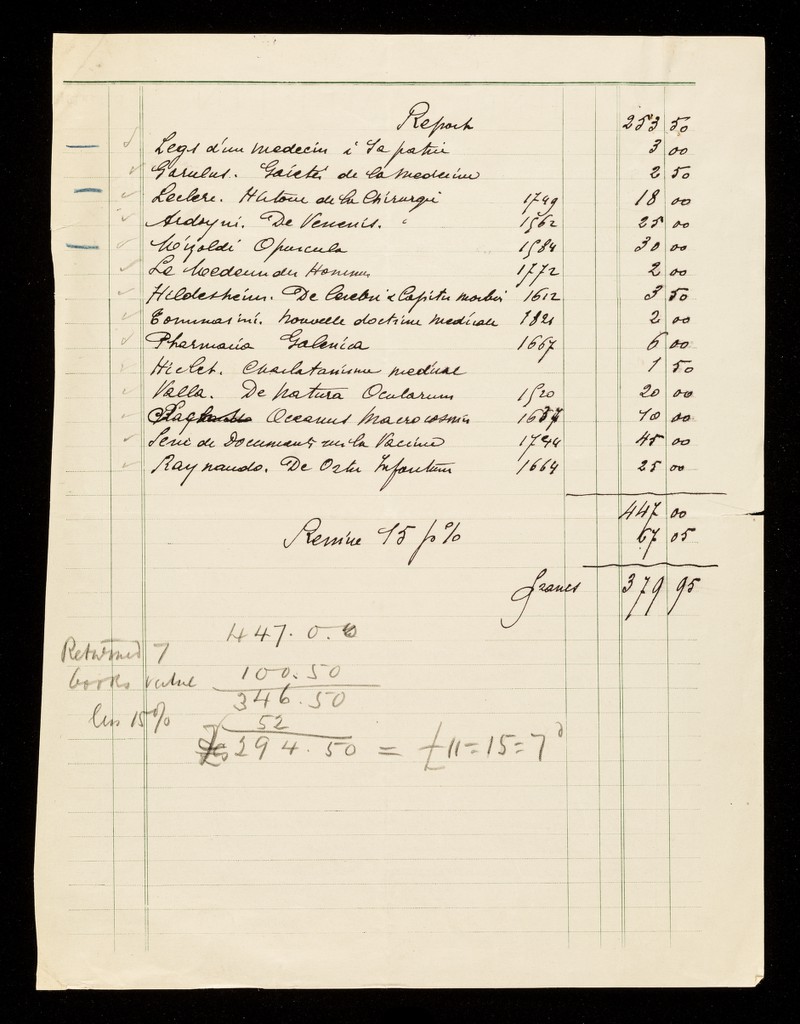 Report 253 50
Legs d'un medecin à sa patrie 3 00
Garulus. Gaieté de la medecine 2 50
Leclerc. Histoire de la Chirurgie 1749 18 00
Ardoyni. De Venenis. 1562 25 00
Mizoldi Opuscula 1584 30 00
Le Medecin des Hommes 1772 2 00
Hildesheim. De Cerebri & Capitis morbis 1612 3 50
Tommasini. Nouvelle doctrine medicale 1821 2 00
Pharmacia Galenica 1667 6 00
Charlatanisme medical 1 50
Valla. De Natura Oculorum 1520 20 00
Oceanus Macrocosmis 10 00
Serie de Documents sur la Vaccine 45 00
Raynaudo. De Ortu Infantium 1664 25 00
447 00
Remise 15 p% 67 05
Francs 379 95
447.0.0
Returned 7
books value 100.50
346.50
less 15% 52
294.50 = £11=15=7d